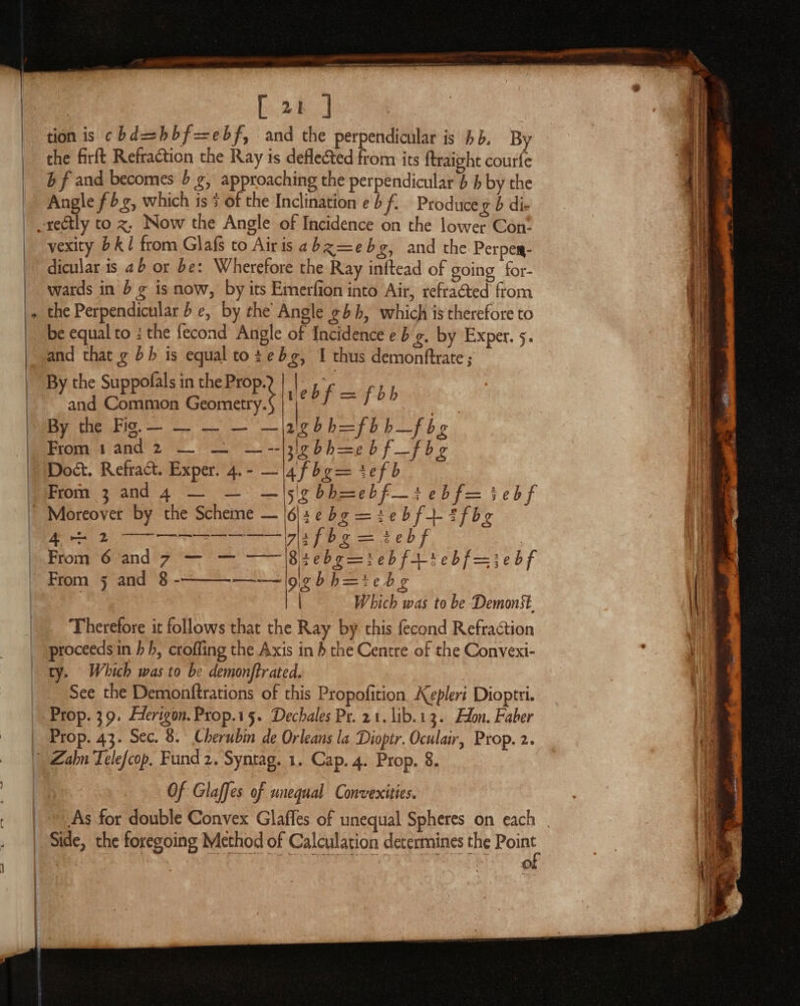 [ 21 ]
tion is c b d=hbf=ebf, and the perpendicular is hb. By
the firſt Refraction the Ray is deflected from its ſtraight courſe
b f and becomes b g, approaching the perpendicular b h by the
Angle f b g, which is ⅓ of the Inclination e b f. Produce g b di-
rectly to z. Now the Angle of Incidence on the lower Con-
vexity b k l from Glaſs to Air is a b z=e b g, and the Perpen-
dicular is a b or b e: Wherefore the Ray inſtead of going for-
wards in b g is now, by its Emerſion into Air, refracted from
the Perpendicular b e, by the Angle g b h, which is therefore to
be equal to ½ the ſecond Angle of Incidence e b g. by Exper. 5.
and that g b h is equal to ½ e b g, I thus demonſtrate;
By the Suppoſals in the Prop. and Common Geometry. } |1| e b f = f b h
By the Fig. — — — — — |2| g b h=f b h—f b g
From 1 and 2 — — — -- |3| g b h=e b f—f b g
Doct. Refract. Exper. 4. - — |4| f b g= ⅓ e f b
From 3 and 4 — — — |5| g b h=e b f—⅓ e b f= ⅔ e b f
Moreover by the Scheme — |6| ½ e b g = ½ e b f + ½ f b g
4 ÷ 2 ————————— |7| ½ f b g = ⅙ e b f
From 6 and 7 — — —— |8| ½ e b g=½ e b f+⅙ e b f=⅔ e b f
From 5 and 8 -———————— |9| g b h=½ e b g
Which was to be Demonſt.
Therefore it follows that the Ray by this ſecond Refraction
proceeds in b h, croſſing the Axis in h the Centre of the Convexi-
ty. Which was to be demonſtrated.
See the Demonſtrations of this Propoſition Kepleri Dioptri.
Prop. 39. Herigon. Prop. 15. Dechales Pr. 21. lib. 13. Hon. Faber
Prop. 43. Sec. 8. Cherubin de Orleans la Dioptr. Oculair, Prop. 2.
Zahn Teleſcop. Fund 2. Syntag. 1. Cap. 4. Prop. 8.
Of Glaſſes of unequal Convexities.
As for double Convex Glaſſes of unequal Spheres on each
Side, the foregoing Method of Calculation determines the Point
of